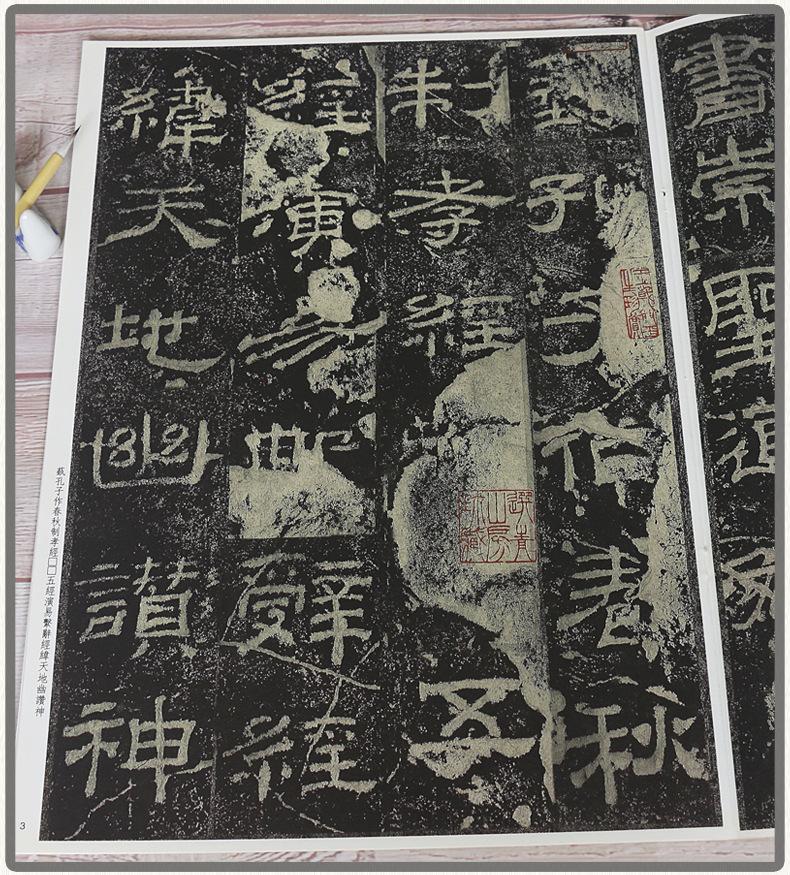 書崇聖道勉
藝孔子作春秋
制孝經五
經演易繫辭經
緯天地幽讚神
藝孔子作春秋制孝經□□五經演易繫辭經緯天地幽讚神
3